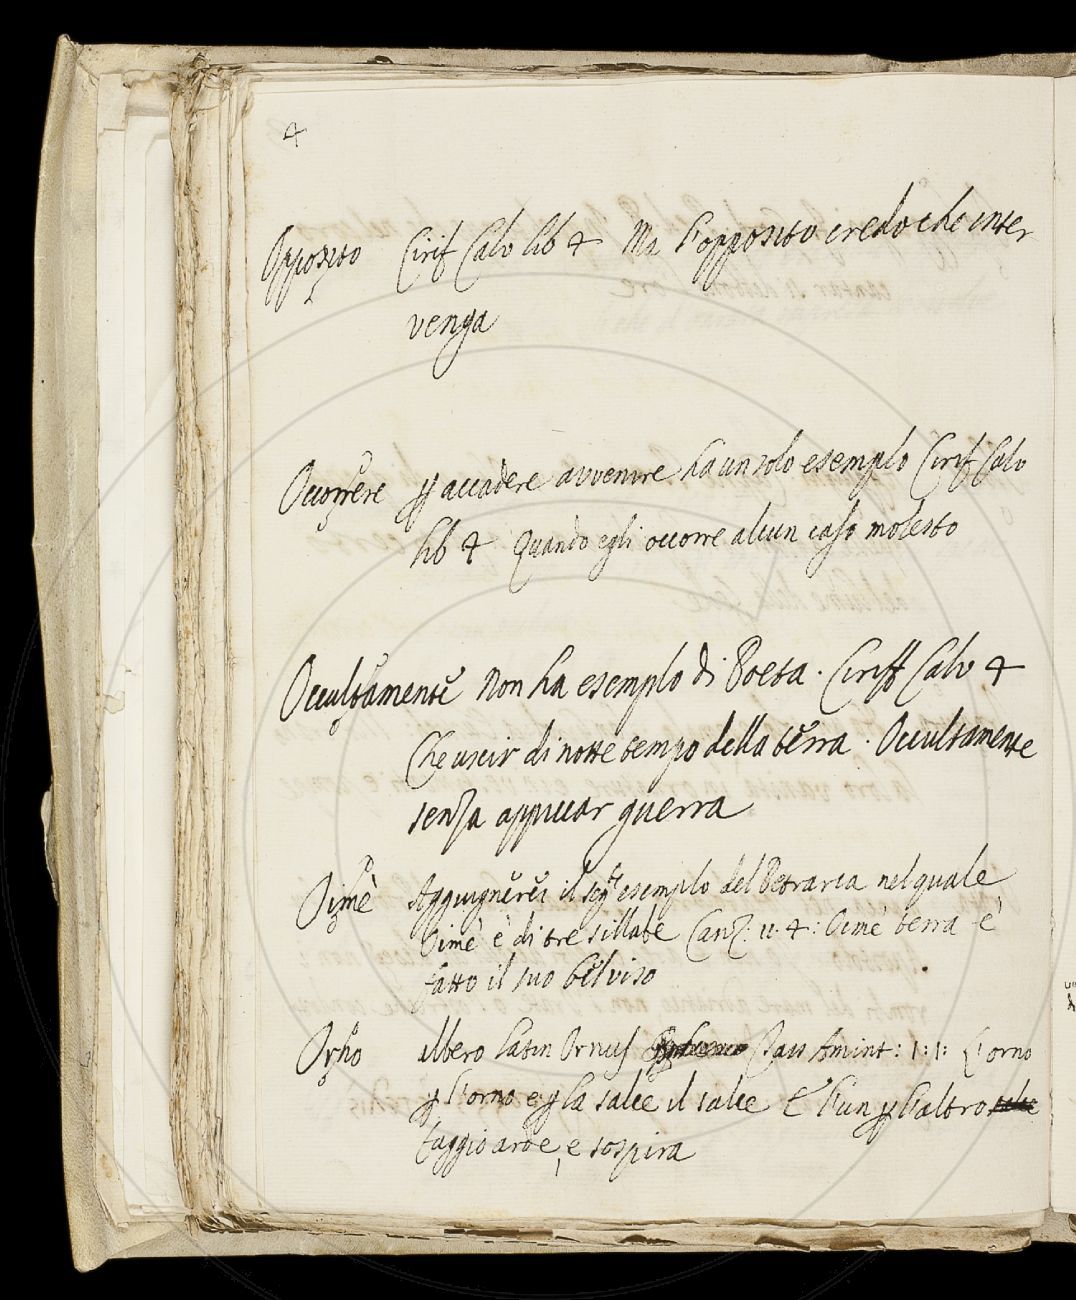 4
Opposito Cirif Calv lib 4 Ma l'opposito credo che inter
venga
Occorrere p accadere avvenire ha un solo esemplo Cirif Calv
lib 4 Quando egli occorre alcun caso molesto
Occultamente Non ha esemplo di Poeta. Ciriff Calv 4
Che uscir di notte tempo della terra. Occultamente
senza appiccar guerra
Oimè Aggiugnerei il seg.te esemplo del Petrarca nel quale
Oimè è di tre sillabe Canz: 11. 4: Oimè terra è
fatto il suo bel viso
Orno albero latin Ornus Tass Amint: 1:1: L'orno
p l'orno e p la salce il salce E l'un p l'altro
faggio arde, e sospira